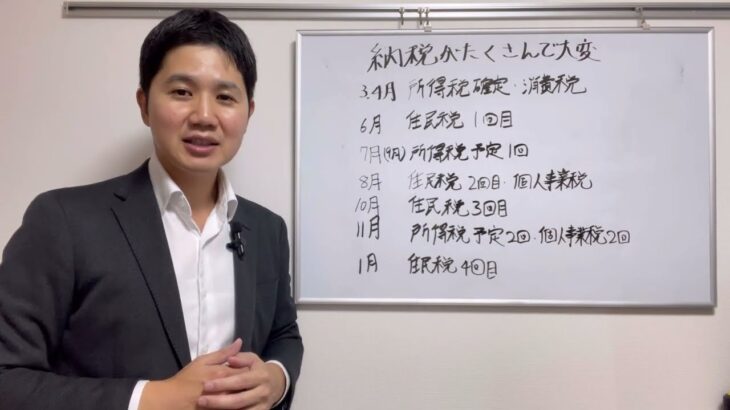 納税がたくさんで大変
3.4月 所得税確定・消費税
6月 住民税 1回目
7月(9月)所得税予定1回
8月 住民税 2回目・個人事業税
10月 住民税3回目
11月 所得税予定2回・個人事業税2回
1月 住民税4回目